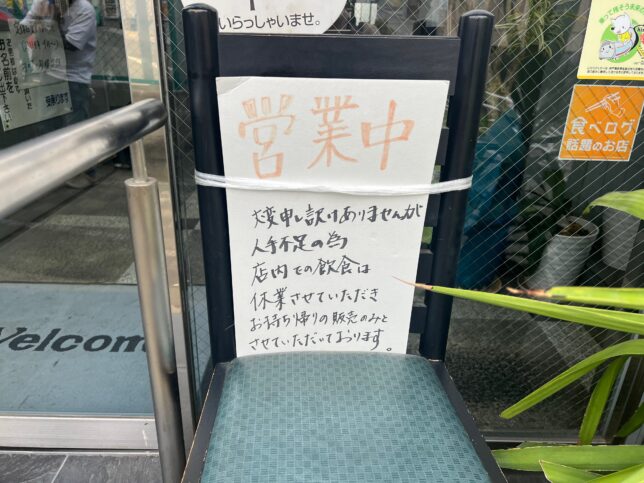 いらっしゃいませ。
お名前
営業中
大変申し訳けありませんが
人手不足の為
店内での飲食は
休業させていただき
お持ち帰りの販売のみと
させていただいております。
食べログ
話題のお店
Welcom